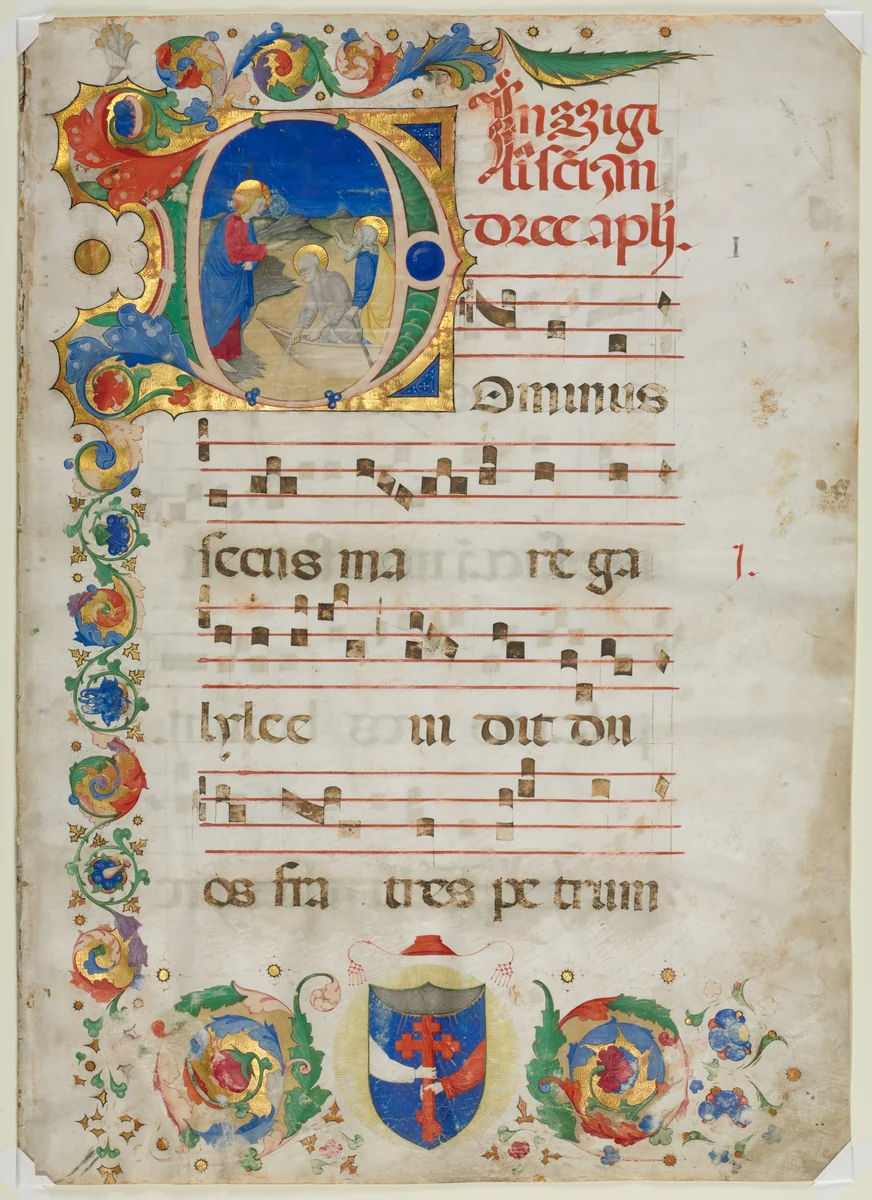 In uigi
li sci An
dree apli.
I
DOminus
secus ma re ga
1.
lylee ui dit du
os fra tres pe trum